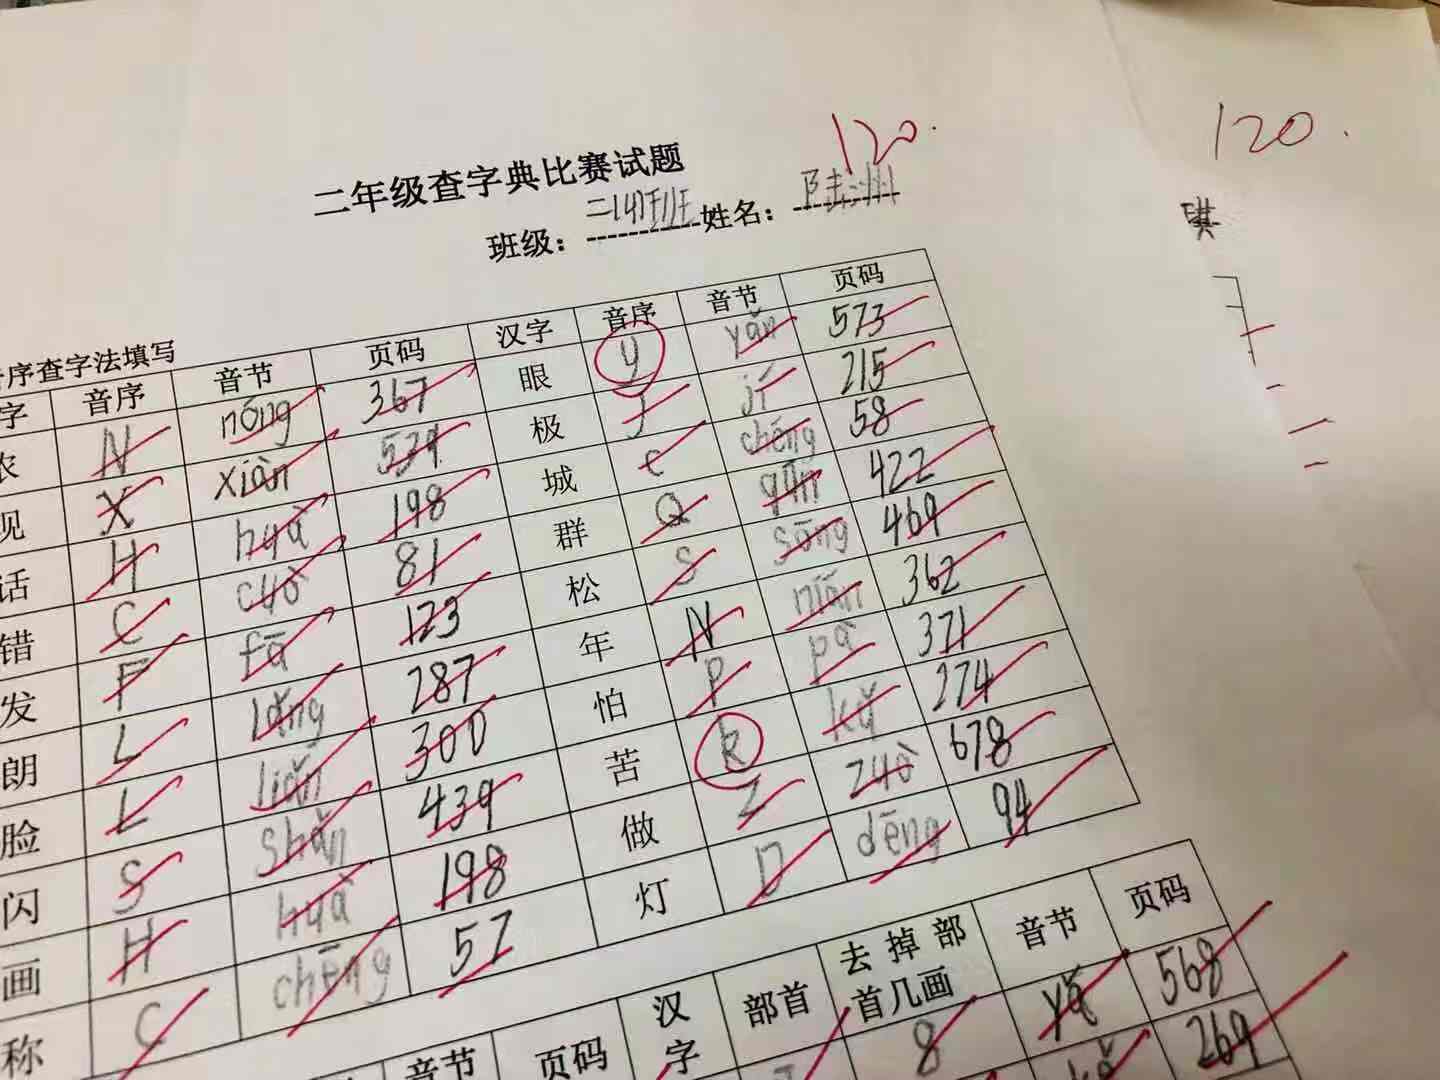 120.
120.
二年级查字典比赛试题
班级：二(4)班 姓名：陆洲
序查字法填写
字 音序 音节 页码 汉字 音序 音节 页码
农 N nóng 367 眼 y yǎn 573
现 X xiàn 539 极 J jí 215
话 H huà 198 城 c chéng 58
错 C cuò 81 群 Q qún 422
发 F fā 123 松 S sōng 469
朗 L lǎng 287 年 N nián 362
脸 L liǎn 300 怕 P pà 371
闪 S shǎn 439 苦 k kǔ 274
画 H huà 198 做 Z zuò 678
称 C chēng 57 灯 D dēng 94
音节 页码 汉字 部首 去掉部首几画 音节 页码
8 568
269